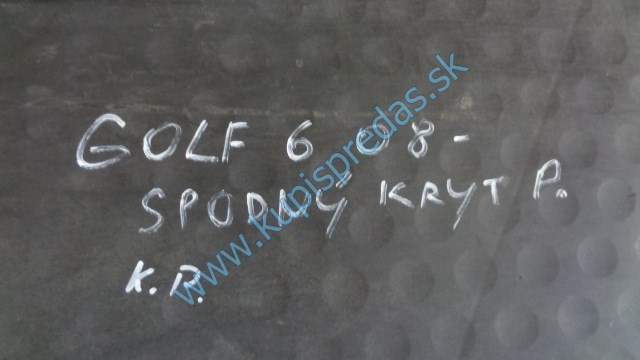 GOLF 6 08-
SPODNÝ KRYT P.
K.R.
www.kupispredas.sk